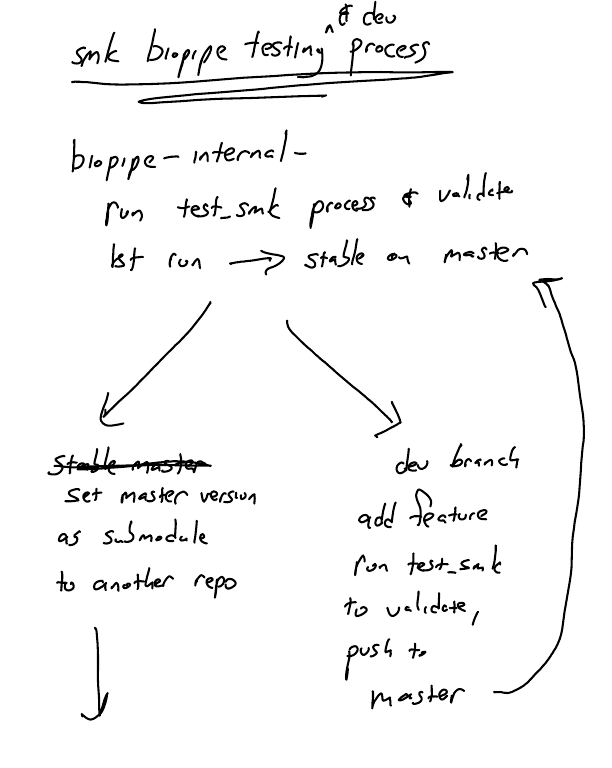 smk biopipe testing & dev process
biopipe - internal -
run test_smk process & validate
1st run → stable on master
Stable master
set master version
as submodule
to another repo
dev branch
add feature
run test_smk
to validate,
push to
master